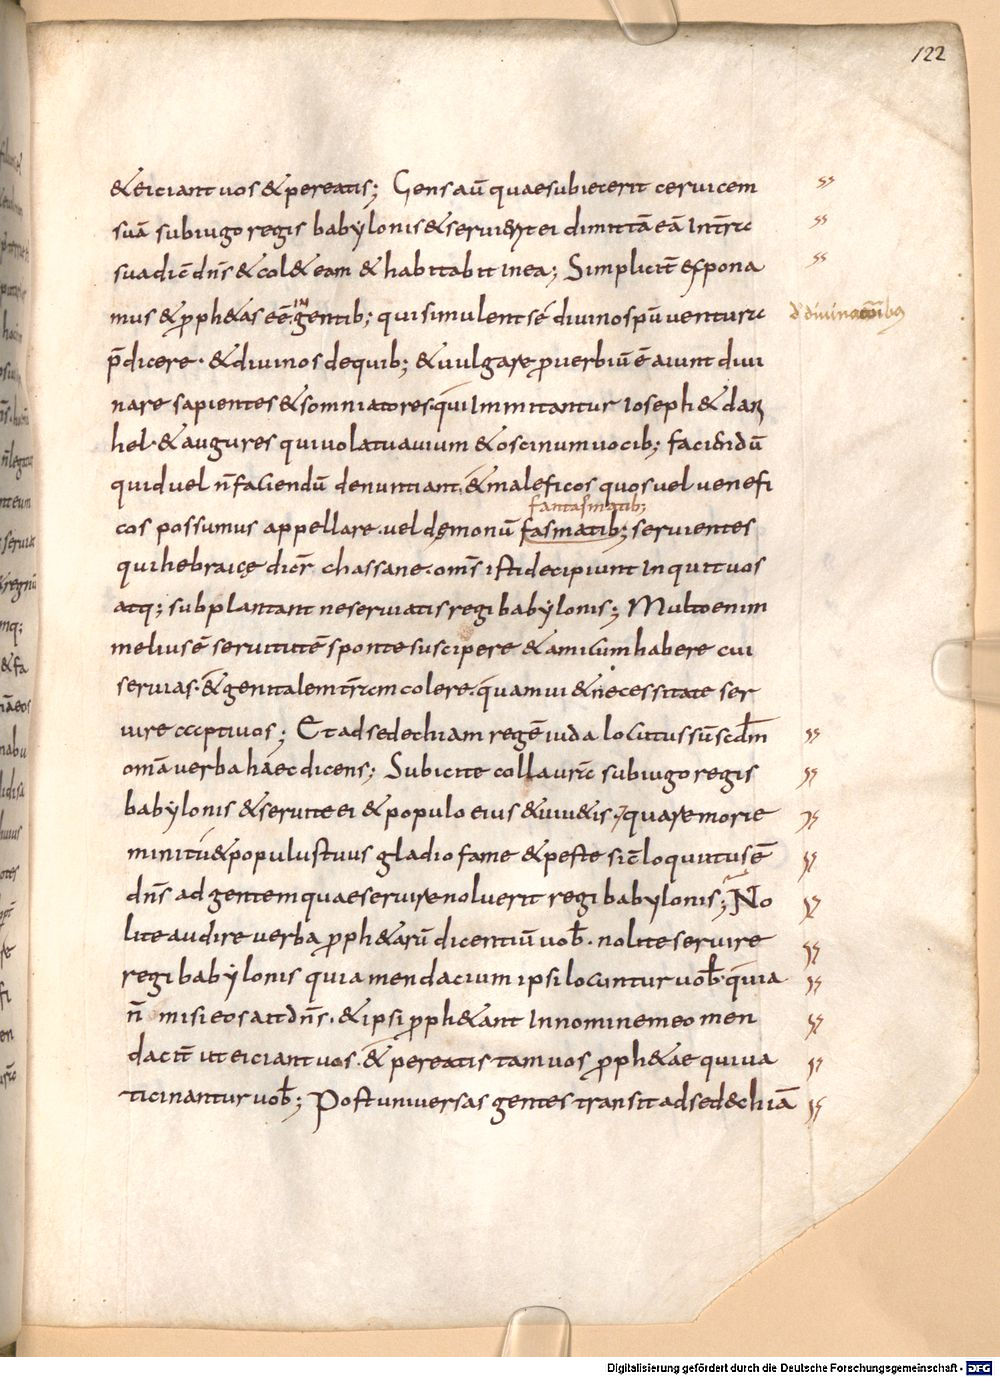 122
&eiciant uos & pereatis; Gens aū quae subiecerit ceruicem
suā sub iugo regis babylonis & seruierit ei dimittā eā In trā
sua dic̄ dn̄s & col& eam & habitabit in ea; Simplicit̄ expona
mus & ꝓph&as eē in gentib; qui simulent sé diuino spū uentura
p̄dicere. & diuinos de quib; & uulgare ꝓuerbiū ē aiunt diui
nare sapientes & somniatores. qui Immitantur Ioseph & dan
hel. & augures qui uolatu auium & oscinum uocib; faciendū
quid uel n̄ faciendū denuntiant. & maleficos quos uel uenefi
fantasmatib;
cos possumus appellare. uel dęmonū fasmatib; seruientes
qui hebraicę dicr̄ chassane. om̄s isti decipiunt Inquit uos
atq; subplantant ne seruiatis regi babylonis; Multo enim
melius ē seruitutē sponte suscipere & amicum habere cui
seruias. & genitalem trām colere. quam ui & necessitate ser
uire captiuos; Et ad sedechiam regē iuda locutus sū scd̄m
omā uerba haec dicens; Subicite colla urā sub iugo regis
babylonis & seruite ei & populo eius & uiu&is. quare morie
mini tu & populus tuus gladio fame & peste sic̄ locutus ē
dn̄s ad gentem quae seruire noluerit regi babylonis; No
lite audire uerba ꝓph&arū dicentiū uob̄. nolite seruire
regi babylonis quia mendacium ipsi locuntur uob̄. quia
n̄ misi eos ait dn̄s. & ipsi ꝓph&ant In nomine meo men
dacit̄ ut eiciant uos. & pereatis tam uos ꝓph&ae qui ua
ticinantur uob̄; Post uniuersas gentes transit ad sed&chiā
Digitalisierung gefördert durch die Deutsche Forschungsgemeinschaft - DFG